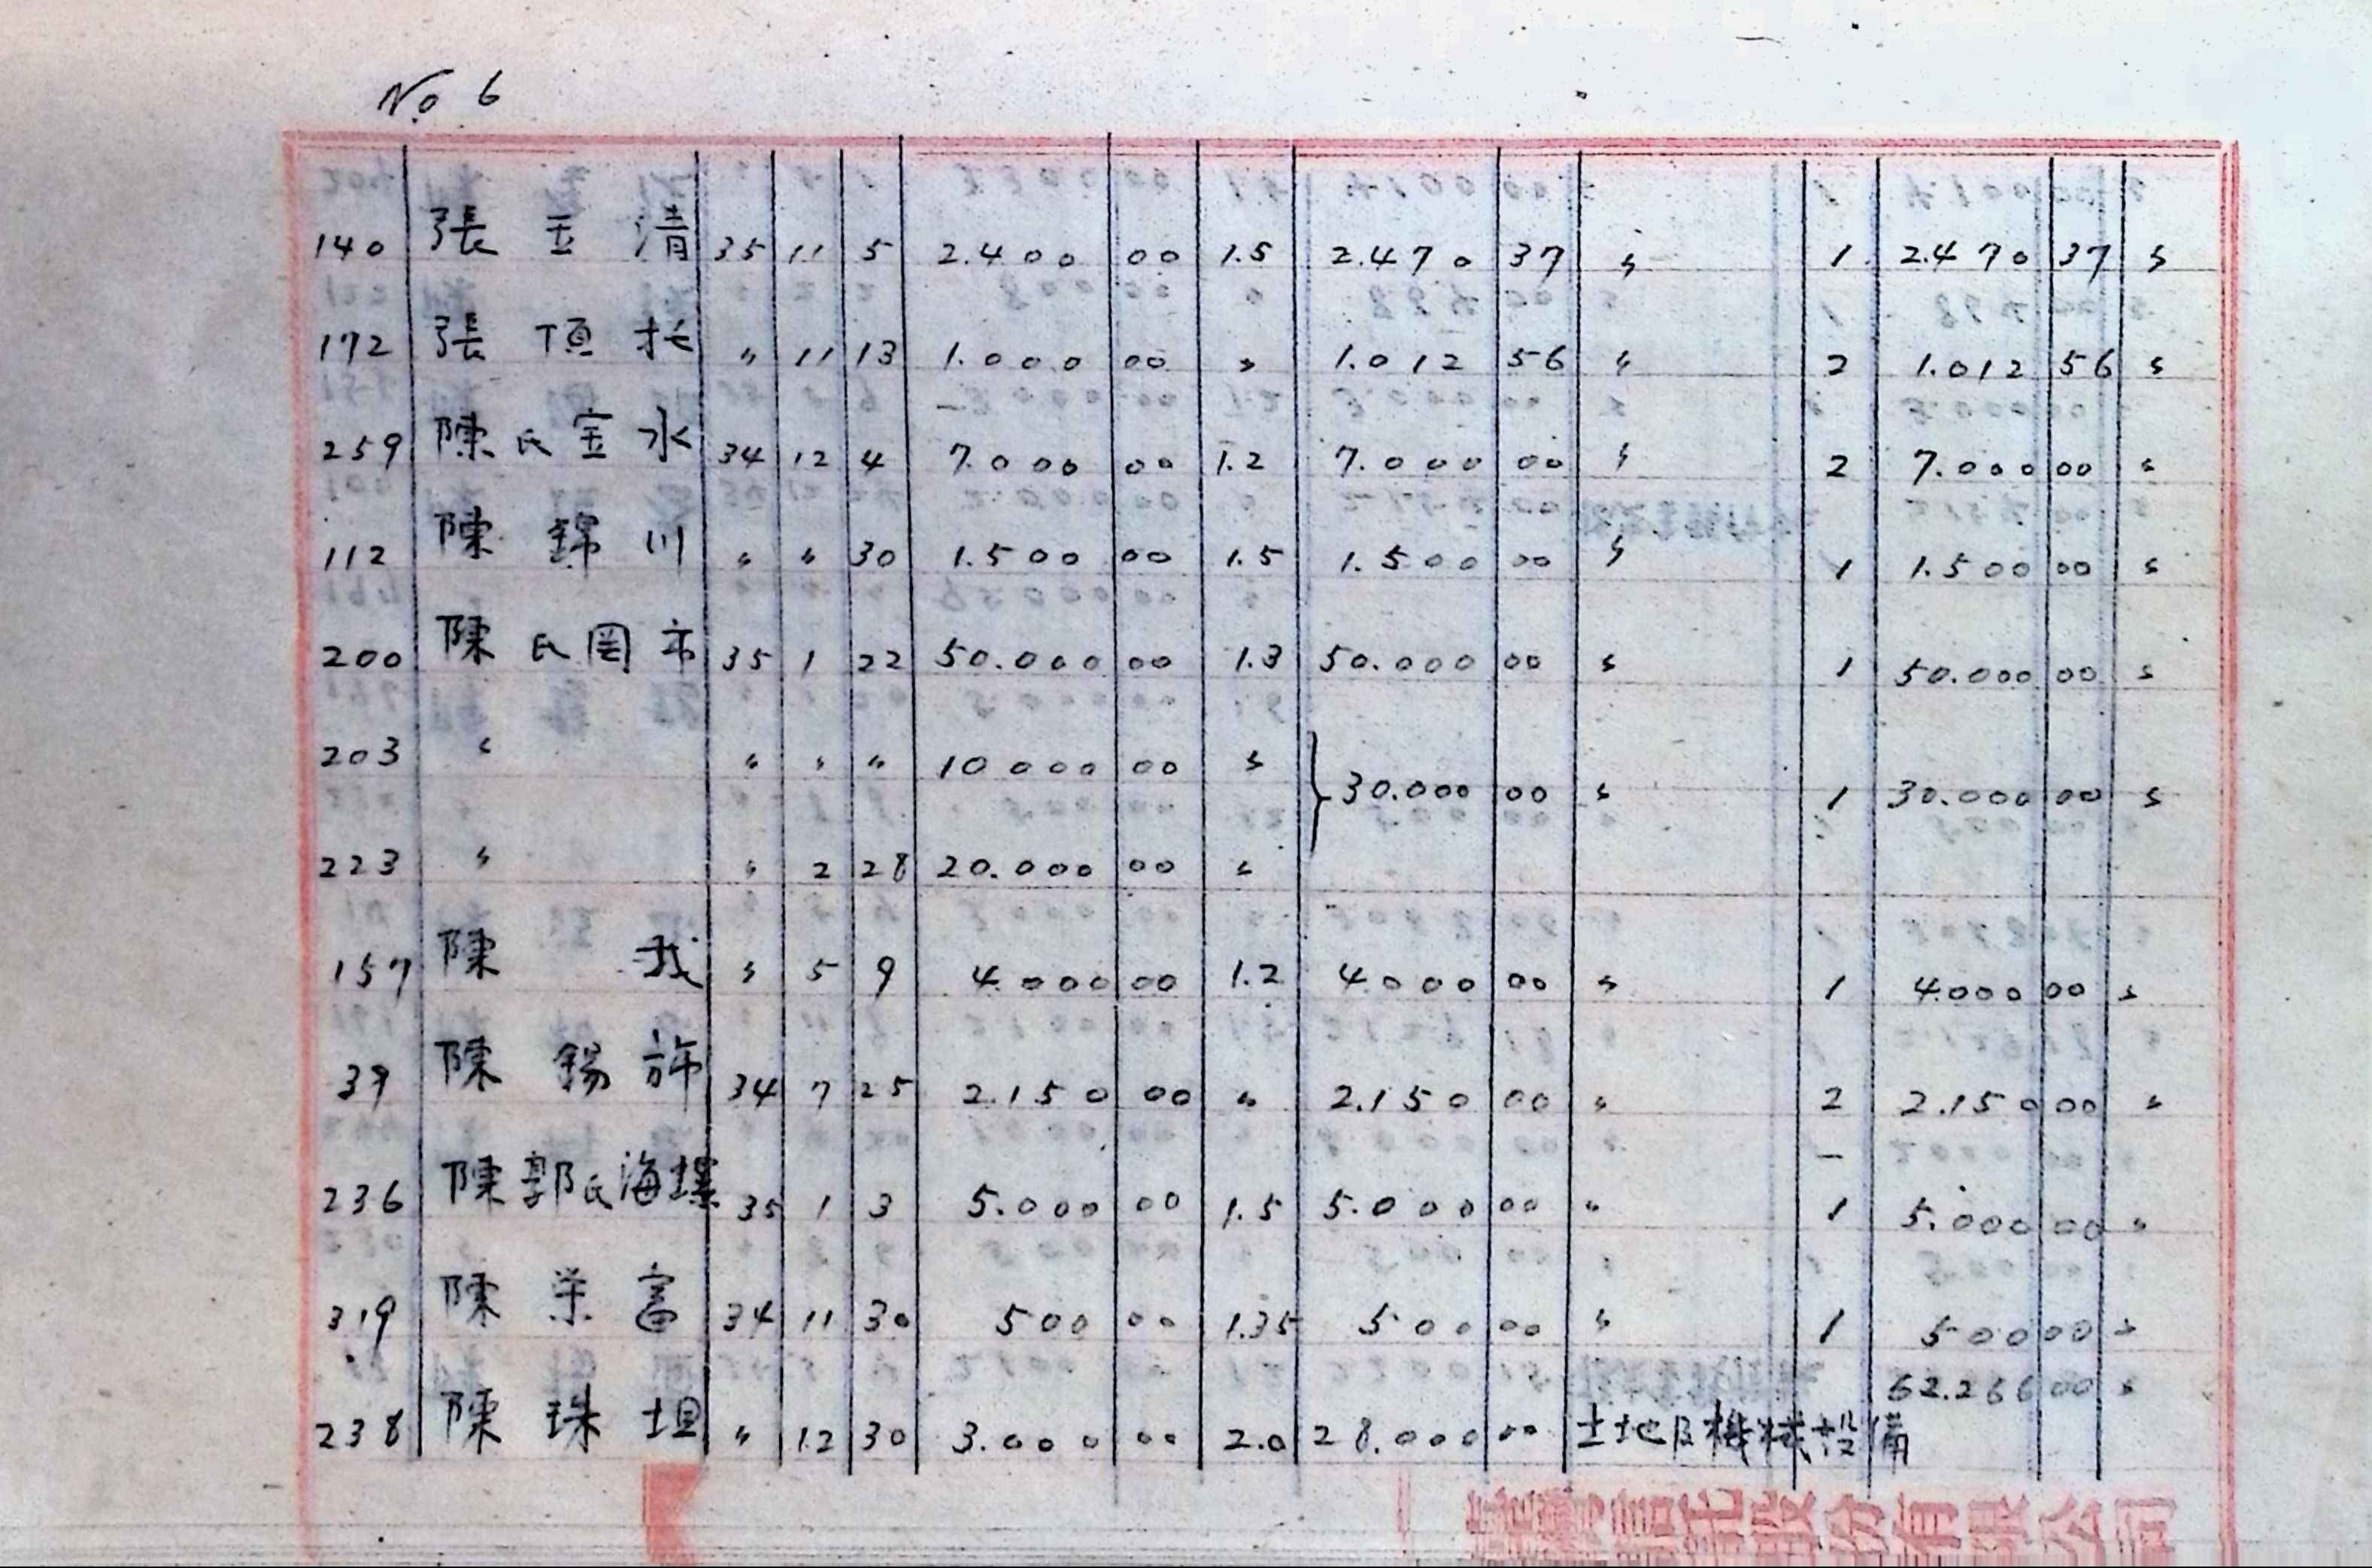 No 6
140 張玉清 35 11 5 2.400 00 1.5 2.470 37 〃 1 2.470 37 〃
172 張頂托 〃 11 13 1.000 00 〃 1.012 56 〃 2 1.012 56 〃
259 陳氏宝水 34 12 4 7.000 00 1.2 7.000 00 〃 2 7.000 00 〃
112 陳錦川 〃 〃 30 1.500 00 1.5 1.500 00 〃 1 1.500 00 〃
200 陳氏罔市 35 1 22 50.000 00 1.3 50.000 00 〃 1 50.000 00 〃
203 〃 〃 〃 〃 10 000 00 〃
} 30.000 00 〃 1 30.000 00 〃
223 〃 〃 2 28 20.000 00 〃
157 陳 〃 5 9 4.000 00 1.2 4000 00 〃 1 4.000 00 〃
39 陳錫 34 7 25 2.150 00 〃 2.150 00 〃 2 2.150 00 〃
236 陳郭氏海 35 1 3 5.000 00 1.5 5.000 00 〃 1 5.000 00 〃
319 陳栄富 34 11 30 500 00 1.35 500 00 〃 1 500 00 〃
62.266 00 〃
238 陳珠坦 〃 12 30 3.000 00 2.0 28.000 00 土地及機械設備
信託股份有限公司